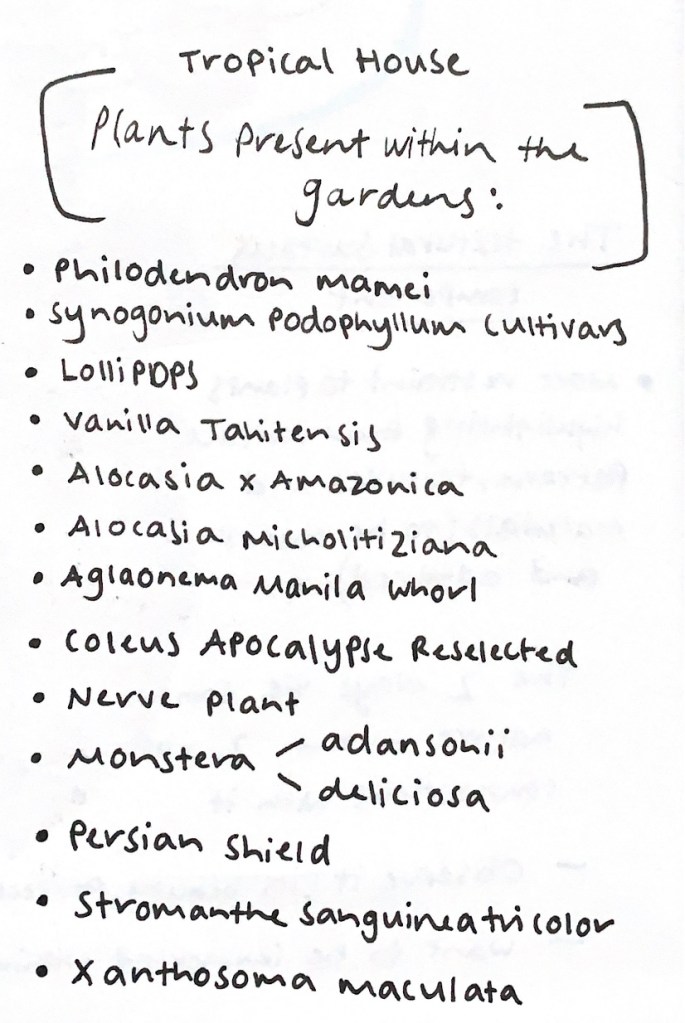 Tropical House
Plants present within the
gardens:
• Philodendron mamei
• Synogonium Podophyllum cultivars
• LolliPOPS
• Vanilla Tahitensis
• Alocasia x Amazonica
• Alocasia Micholitiziana
• Aglaonema Manila Whorl
• Coleus Apocalypse Reselected
• Nerve Plant
• Monstera adansonii
deliciosa
• Persian Shield
• Stromanthe sanguinea tricolor
• Xanthosoma maculata